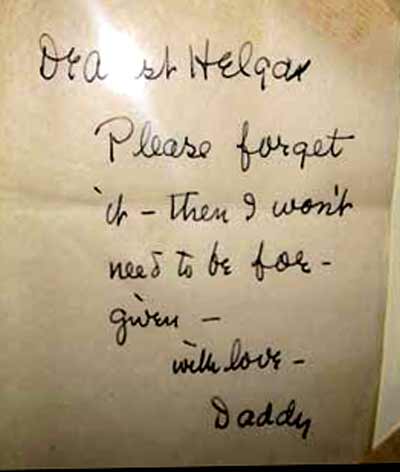 Dearest Helga
Please forget
it - then I won't
need to be for-
given -
with love -
Daddy